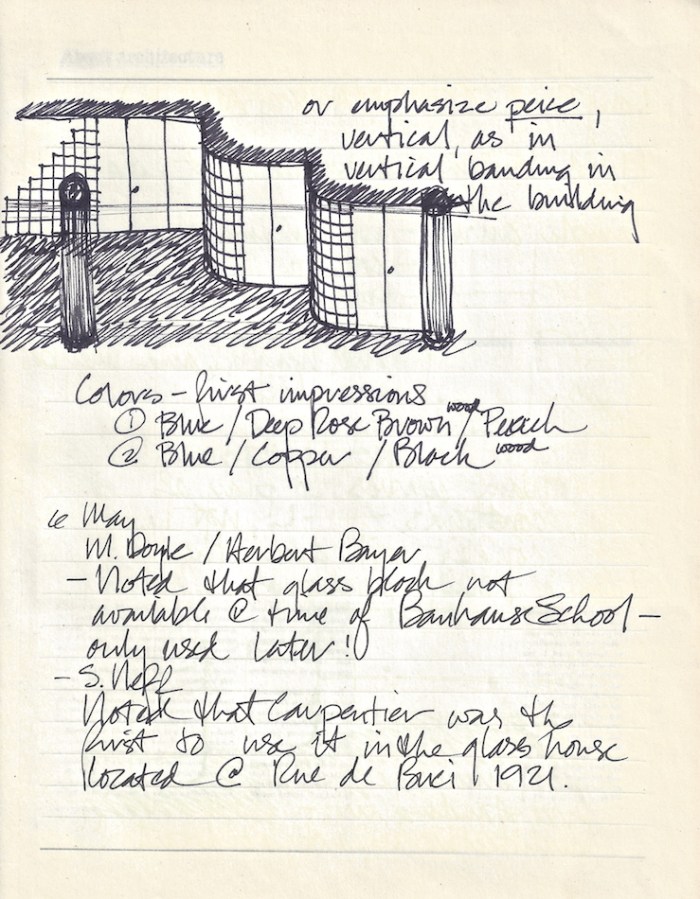 or emphasize
vertical, as in
vertical banding in
the building
Colors – first impressions
① Blue / Deep Rose Brown wood / Peach
② Blue / Copper / Black wood
6 May
M. Doyle / Herbert Bayer
– Noted that glass block not
available @ time of Bauhause School –
only used later!
– S. Neff
Noted that Carpentier was the
first to use it in the glass house
located @ Rue de Buci, 1921.